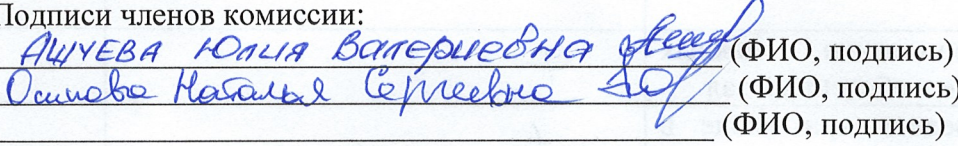 Подписи членов комиссии:
Ашуева Юлия Валериевна (ФИО, подпись)
Осипова Наталья Сергеевна (ФИО, подпись)
(ФИО, подпись)